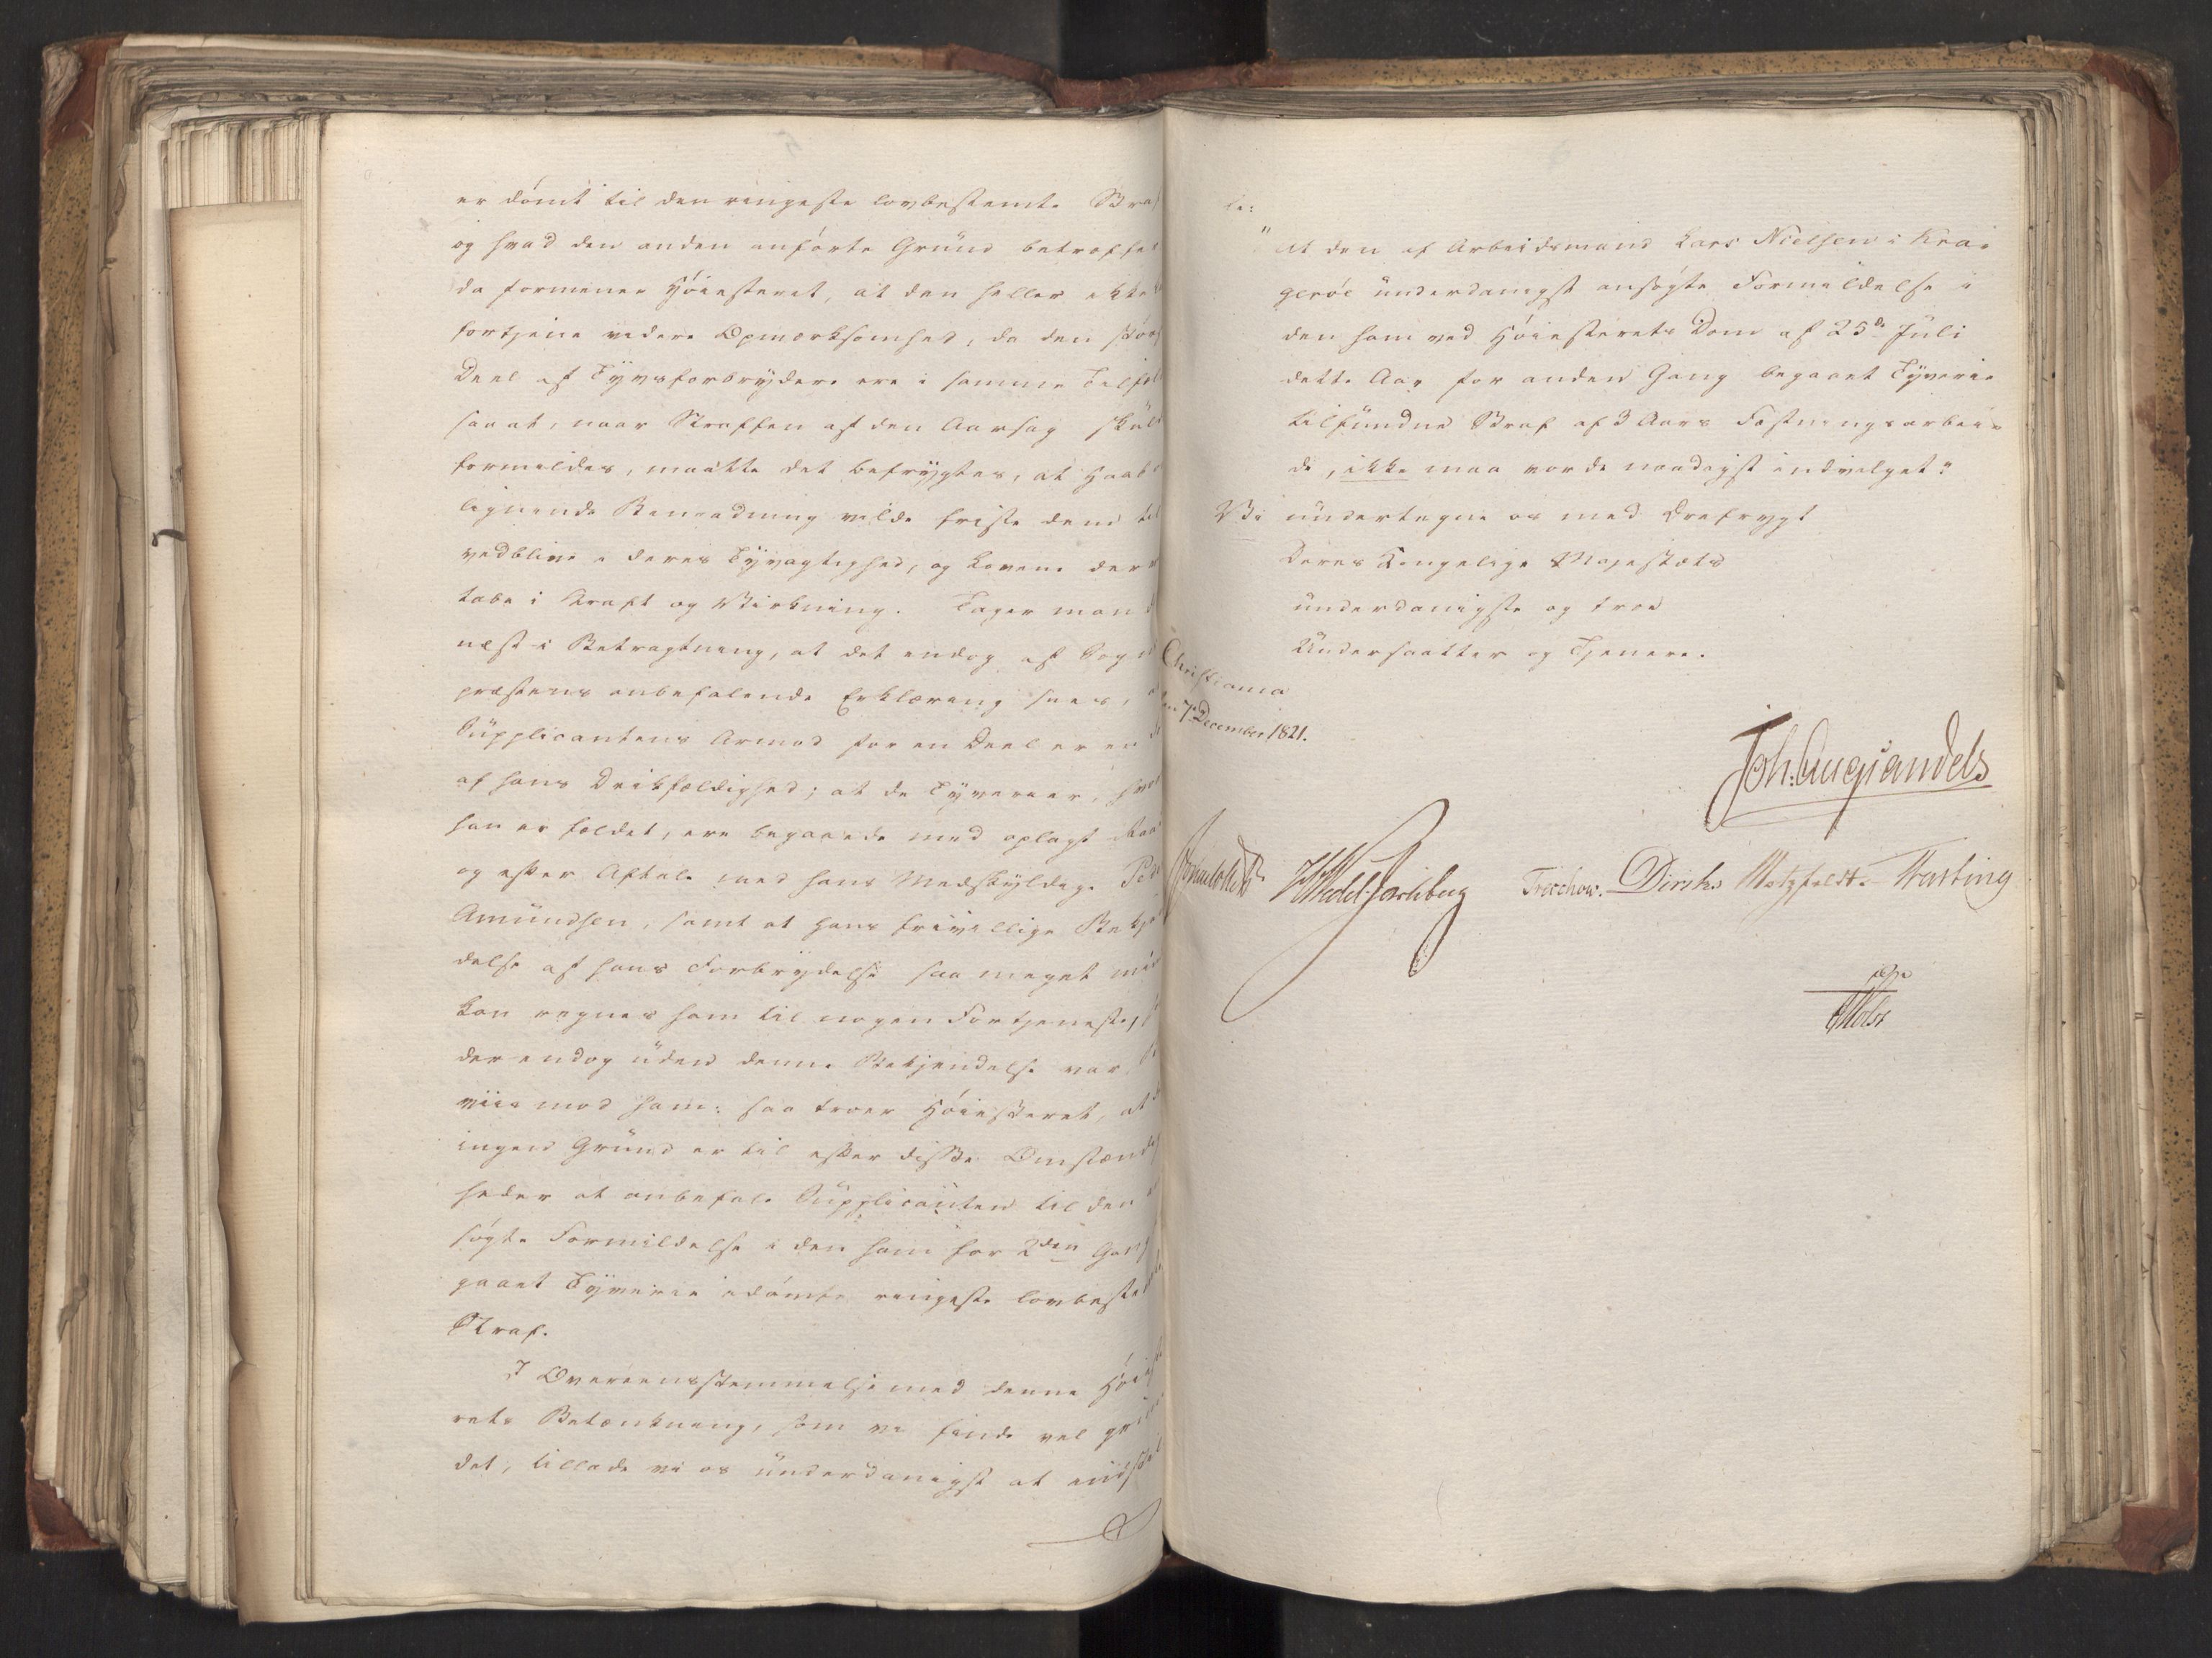 er dömt til den ringeste lovbestemte Straf
og hvad den anden anförte Grund betræffer
da formener Höiesteret, at den heller ikke
fortjene videre Opmærksomhed, da den stör
Deel af Tyvsforbrydere ere i samme Tilfæl
saa at, naar Straffen af den Aarsag skuld
formildes, maatte det befrygtes, at Haab
lignende Benaadning vilde friste dem til
vedblive i deres Tyvagtighed, og Lovene der
tabe i Kraft og Virkning. Tager man
næst i Betragtning, at det endog af Sogne
præstens anbefalende Erklæring sees, at
Supplicantens Armod for en Deel er en
af hans Drikfældighed; at de Tyverier, hvor
han er fældet, ere begaaede med oplagt Raad
og efter Aftale med hans Medskyldige Peder
Amundsen, samt at hans frivillige Bekjen
delse af hans Forbrydelse saa meget mindre
kan regnes ham til nogen Fortjeneste,
der endog uden denne Bekjendelse var Be
viis mod ham: saa troer Höiesteret, at
ingen Grund er til efter disse Omstændig
heder at anbefale Supplicanten til den an
sögte Formildelse i den ham for 2den Gang
gaaet Tyverie idömte ringeste lovbestemte
Straf.
I Overeensstemmelse med denne Höieste
rets Betænkning, som vi finde vel grun
det, tillade vi os underdanigst at indstil
le:
"at den af Arbeidsmand Lars Nielsen i Kra-
geröe underdanigst ansögte Formildelse i
den ham ved Höiesterets Dom af 25de Juli
dette Aar for anden Gang begaaet Tyverie
tilfundne Straf af 3 Aars Fæstningsarbei-
de, ikke maa vorde naadigst indvilget"
Vi undertegne os med Ærefrygt
Deres Kongelige Majestæts
underdanigste og troe
Undersaatter og Tjenere.
Christiania
den 7de December 1821.
Joh: Aug: Sandels
Sommerhielm HWedel Jarlsberg Treschow. Diriks Motzfeldt. Fasting